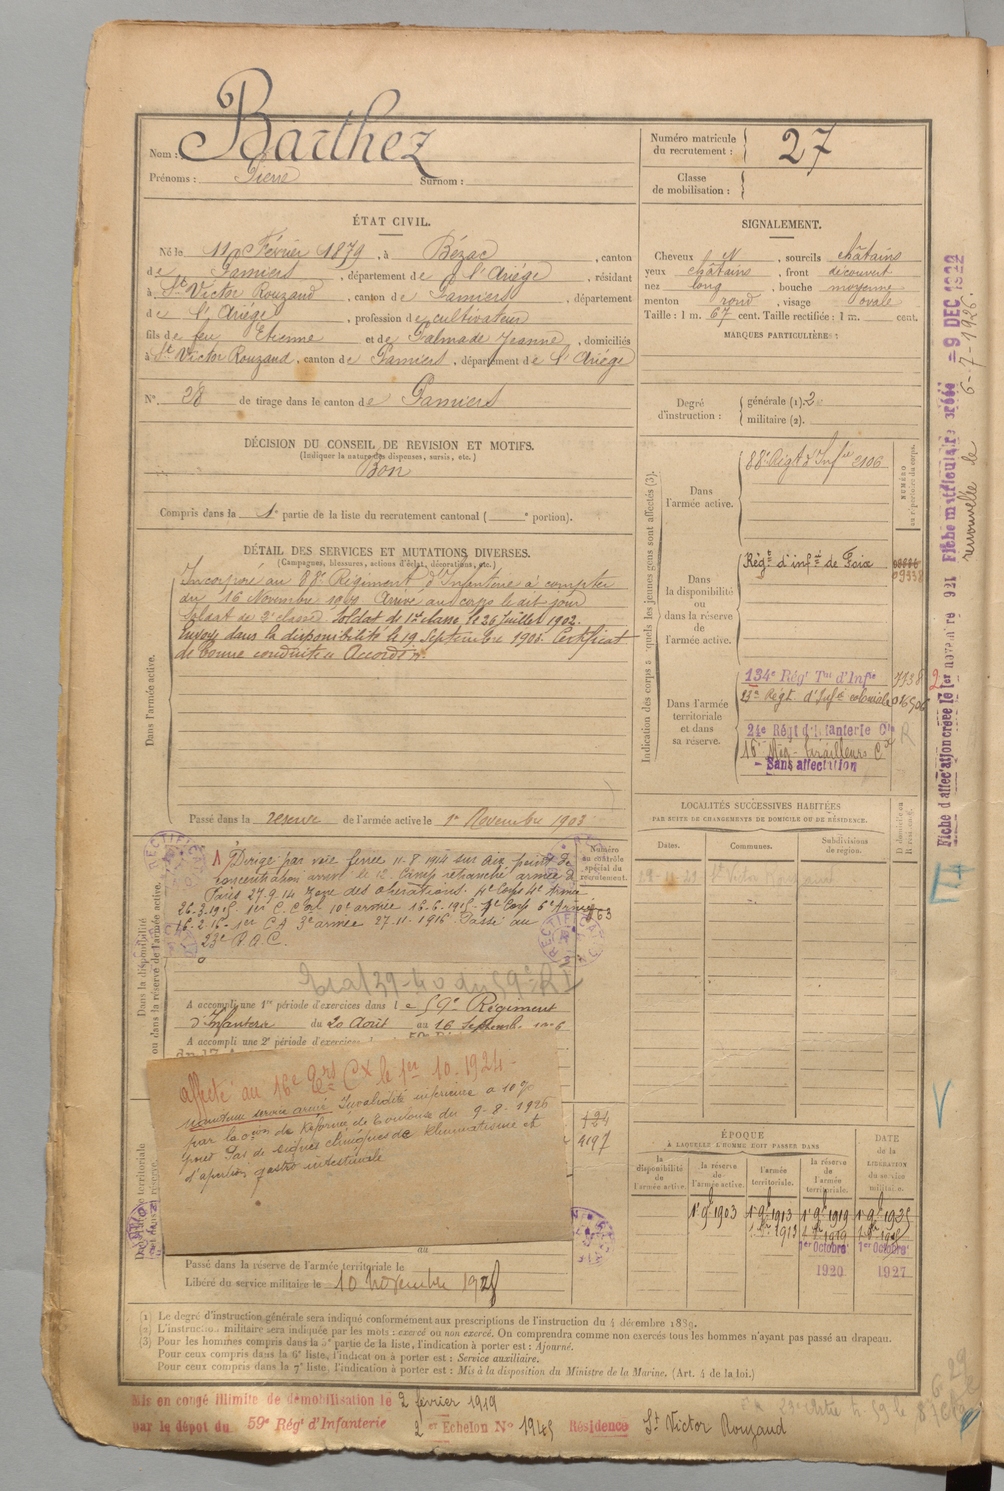 Nom : Barthez
Prénoms : Pierre Surnom :
Numéro matricule du recrutement : 27
Classe de mobilisation :
ÉTAT CIVIL.
Né le 11 Février 1879, à Bézac, canton
de Pamiers, département de l'Ariège, résidant
à St Victor Rouzaud, canton de Pamiers, département
de l'Ariège, profession de cultivateur
fils de feu Etienne et de Palmade Jeanne, domiciliés
à St Victor Rouzaud, canton de Pamiers, département de l'Ariège
N°. 28 de tirage dans le canton de Pamiers
SIGNALEMENT.
Cheveux N, sourcils châtains
yeux châtains, front découvert
nez long, bouche moyenne
menton rond, visage ovale
Taille : 1 m. 67 cent. Taille rectifiée : 1 m. cent.
MARQUES PARTICULIÈRES :
Degré d'instruction : générale (1). 2
militaire (2).
DÉCISION DU CONSEIL DE REVISION ET MOTIFS.
(Indiquer la nature des dispenses, sursis, etc.)
Bon
Compris dans la 1e partie de la liste du recrutement cantonal ( e portion).
DÉTAIL DES SERVICES ET MUTATIONS DIVERSES.
(Campagnes, blessures, actions d'éclat, décorations, etc.)
Dans l'armée active.
Incorporé au 88e Régiment d'Infanterie à compter
du 16 Novembre 1900 Arrivé au corps le dit jour
soldat de 2e classe. Soldat de 1re classe, le 26 juillet 1902.
Envoyé dans la disponibilité le 19 Septembre 1903. Certificat
de bonne conduite Accordé.
Passé dans la réserve de l'armée active le 1er Novembre 1903
Indication des corps auxquels les jeunes gens sont affectés (3).
NUMÉRO au répertoire du corps.
Dans l'armée active.
88e Régt d'Infie 2106
Dans la disponibilité ou dans la réserve de l'armée active.
Régt d'infie de Foix
Dans l'armée territoriale et dans sa réserve.
134e Rég Tal d'Infie 7138
23e Régt d'Infie coloniale
24e Régt d'Infanterie Cle R
16e Rég. Tirailleurs Cx
- Sans affectation
LOCALITÉS SUCCESSIVES HABITÉES
PAR SUITE DE CHANGEMENTS DE DOMICILE OU DE RÉSIDENCE.
Dates. Communes. Subdivisions de région. D domicile ou R résidence.
St Victor Rouzaud
Dans la disponibilité ou dans la réserve de l'armée active.
Numéro au contrôle spécial du recrutement.
Dirigé par voie ferrée 11-8 1914 sur Aix point de
concentration arrivé le 12. Camp retranché armée de
Paris 27.9.14 zone des opérations. 4e Corps 4e Armée
26-3-1915 1er C. Cal 10e armée 16-6-1915
16-2-16 1er CA 3e armée 27-11-1916 Passé au
23e R.A.C.
Etat 39-40 du 59e RI
A accompli une 1re période d'exercices dans le 59e Régiment
d'Infanterie du 20 Août au 16 Septembre 1906
A accompli une 2e période d'exercices
affecté au 16e Ters Cx le 1er 10. 1924-
maintenu service armé Invalidité inférieure à 10%
par la Comon de Réforme de Toulouse du 9-8-1926
pour Pas de signes cliniques de Rhumatisme et
d'aptitude gastro intestinale
4197
au
Passé dans la réserve de l'armée territoriale le
Libéré du service militaire le 10 novembre 1928
ÉPOQUE
À LAQUELLE L'HOMME DOIT PASSER DANS
la disponibilité de l'armée active. la réserve de l'armée active. l'armée territoriale. la réserve de l'armée territoriale.
DATE de la LIBÉRATION du service militaire.
1er 9bre 1903 1er 9bre 1913 1er 9bre 1919 1er 9bre 1925
1er Octobre 1920
1er Octobre 1927
(1) Le degré d'instruction générale sera indiqué conformément aux prescriptions de l'instruction du 4 décembre 1889.
(2) L'instruction militaire sera indiquée par les mots : exercé ou non exercé. On comprendra comme non exercés tous les hommes n'ayant pas passé au drapeau.
(3) Pour les hommes compris dans la 5e partie de la liste, l'indication à porter est : Ajourné.
Pour ceux compris dans la 6e liste, l'indication à porter est : Service auxiliaire.
Pour ceux compris dans la 7e liste, l'indication à porter est : Mis à la disposition du Ministre de la Marine. (Art. 4 de la loi.)
Mis en congé illimité de démobilisation le 2 février 1919
par le dépôt du 59e Rég d'Infanterie 2e Echelon N° 1945 Résidence St Victor Rouzaud
Fiche d'affectation créée le 1er novembre 921 Fiche matriculaire créée =9 DEC 1922
renouvelée le 6-7-1926.